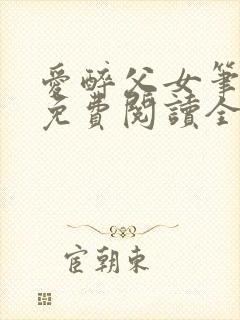 愛醉父女筆
免費閱讀全
宦朝東